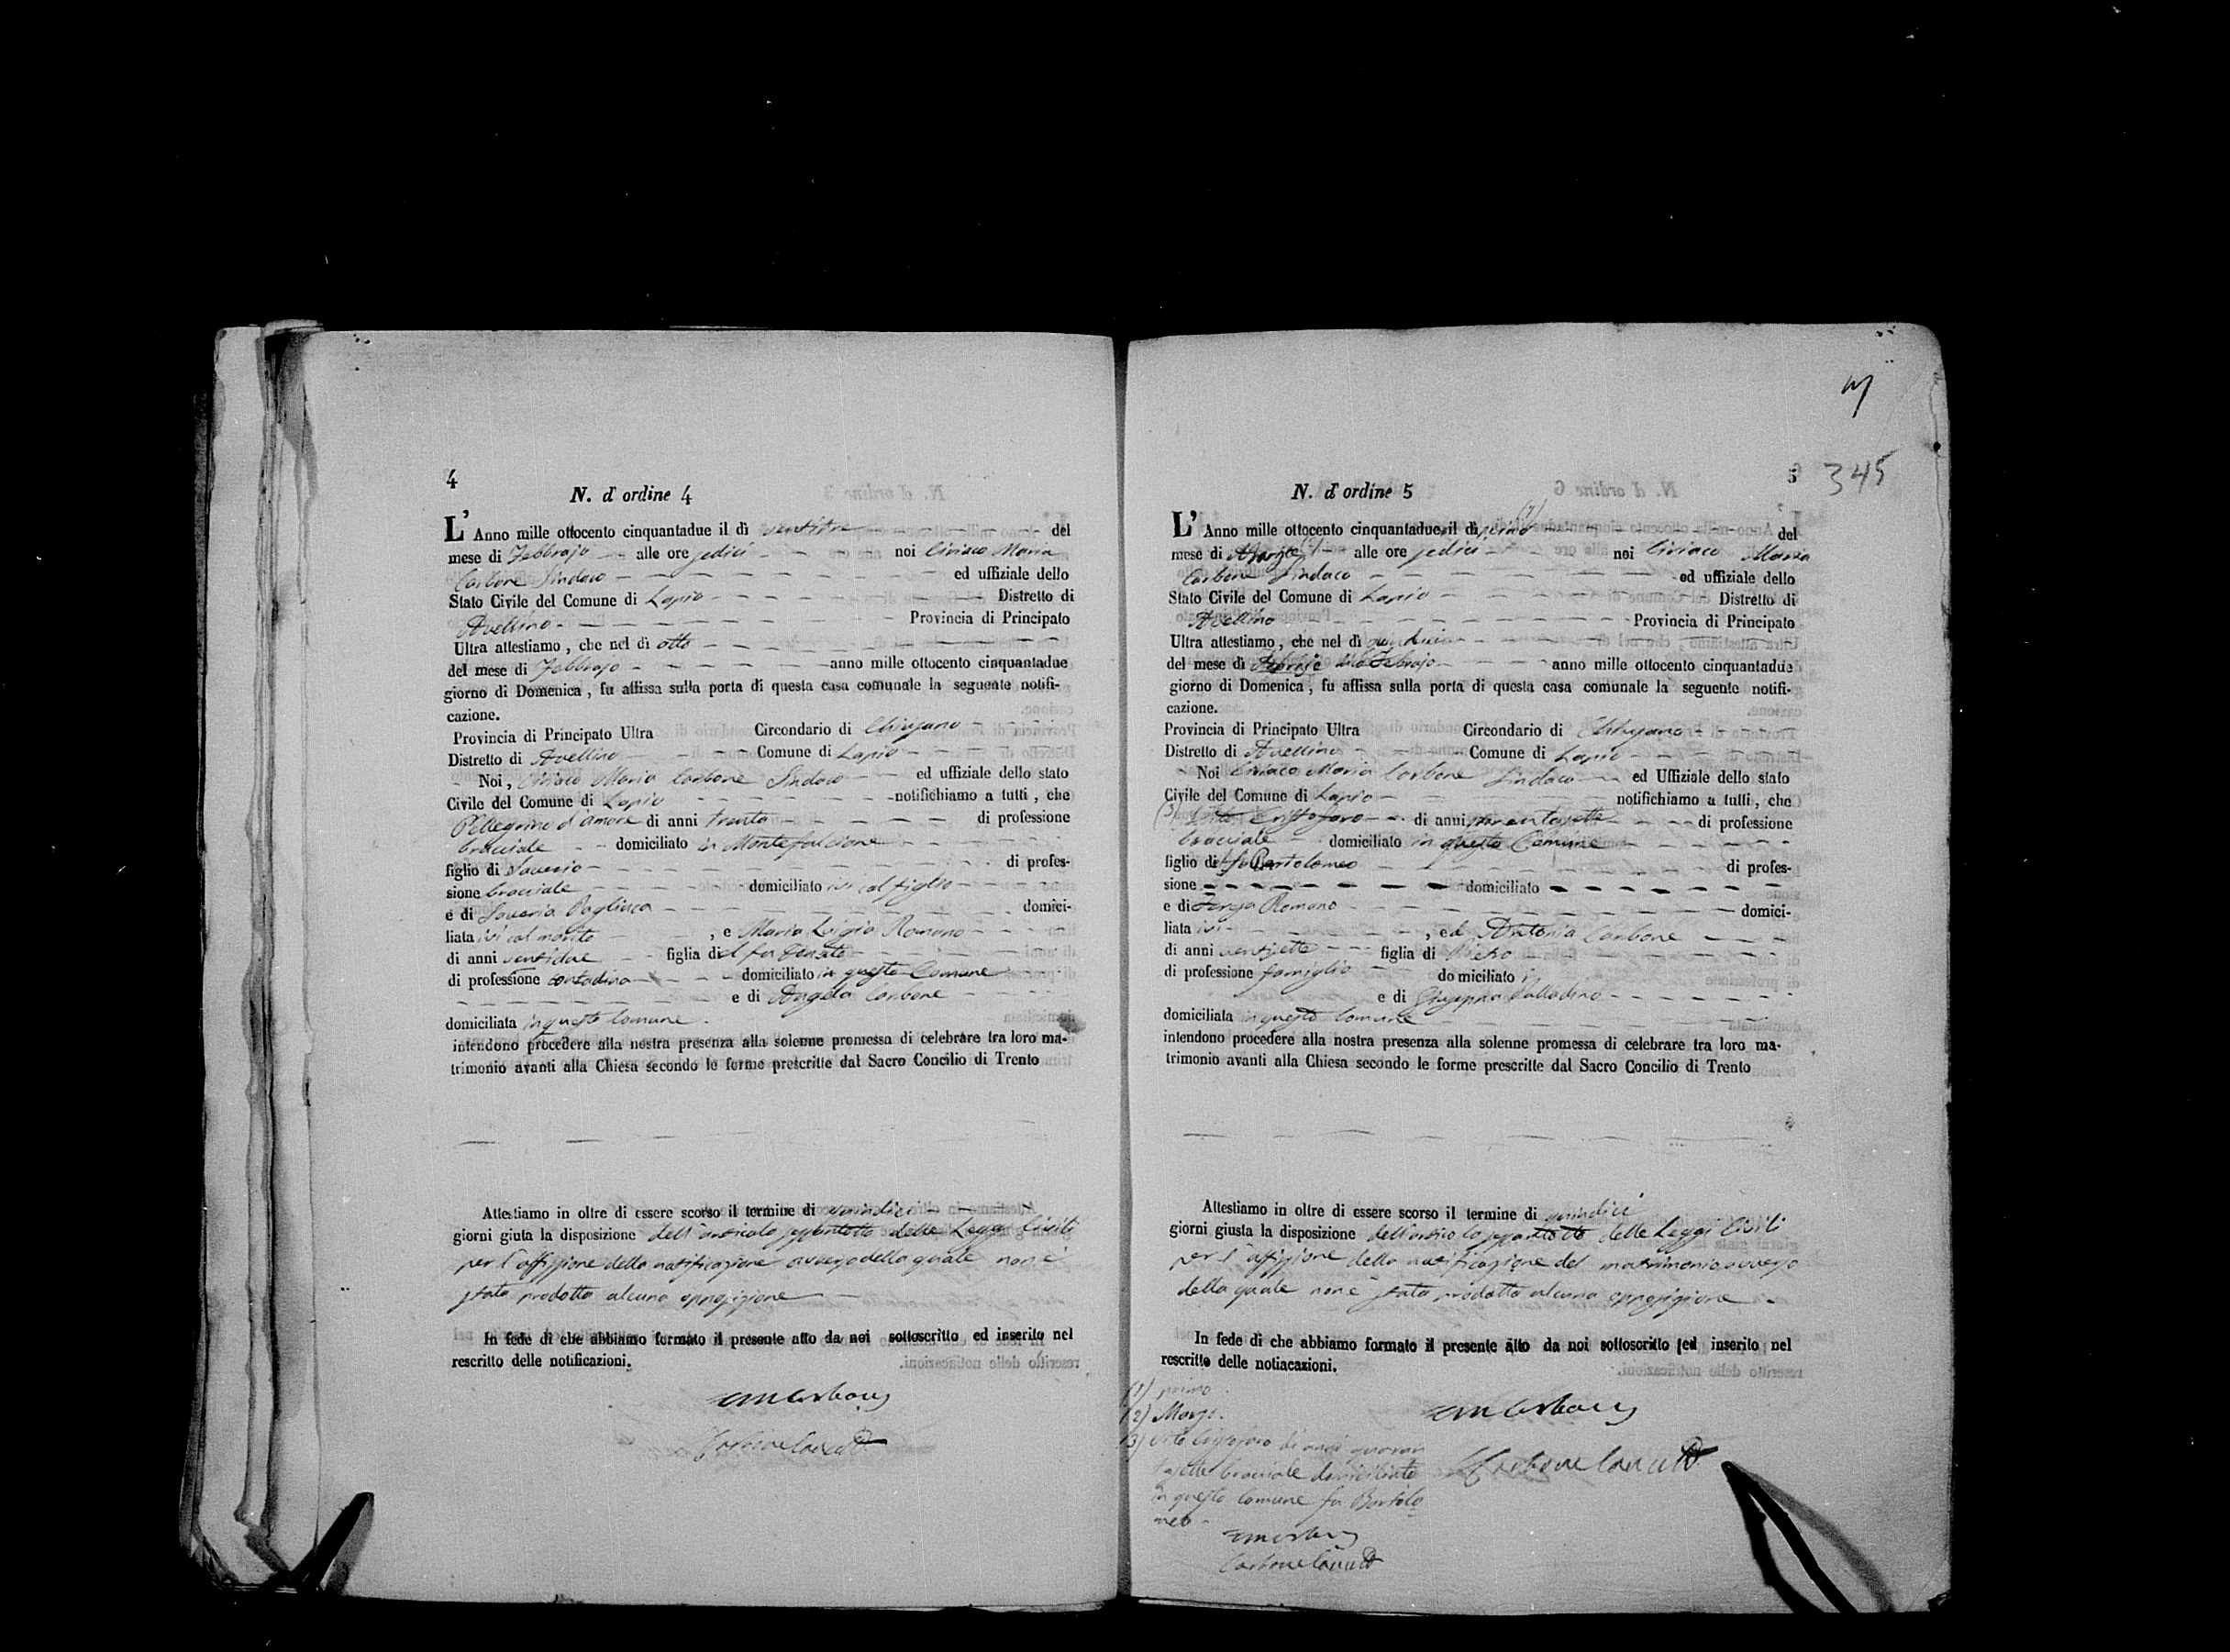 4
N. d'ordine 4
L' Anno mille ottocento cinquantadue il dì ventitre del
mese di Febbrajo alle ore sedici noi Ciriaco Maria
Carbone Sindaco ed uffiziale dello
Stato Civile del Comune di Lapio Distretto di
Avellino Provincia di Principato
Ultra attestiamo, che nel dì otto
del mese di Febbrajo anno mille ottocento cinquantadue
giorno di Domenica, fu affissa sulla porta di questa casa comunale la seguente notifi-
cazione.
Provincia di Principato Ultra Circondario di Chiusano
Distretto di Avellino Comune di Lapio
Noi, Ciriaco Maria Carbone Sindaco ed uffiziale dello stato
Civile del Comune di Lapio notifichiamo a tutti, che
Pellegrino d'Amore di anni trenta di professione
bracciale domiciliato in Montefalcione
figlio di Saverio di profes-
sione bracciale domiciliato ivi col figlio
e di Saveria Pagliuca domici-
liata ivi col marito, e Maria Luigia Romano
di anni ventidue figlia del fu Donato
di professione contadina domiciliato in questo Comune
e di Angela Carbone
domiciliata in questo Comune.
intendono procedere alla nostra presenza alla solenne promessa di celebrare tra loro ma-
trimonio avanti alla Chiesa secondo le forme prescritte dal Sacro Concilio di Trento
Attestiamo in oltre di essere scorso il termine di quindici
giorni giuta la disposizione dell'articolo settantotto delle Leggi Civili
per l'affissione della notificazione avverso della quale non è
stata prodotta alcuna opposizione
In fede di che abbiamo formato il presente atto da noi sottoscritto ed inserito nel
rescritto delle notificazioni.
5 345
N. d'ordine 5
L' Anno mille ottocento cinquantadue il dì primo (1) del
mese di Marzo (2) alle ore sedici noi Ciriaco Maria
Carbone Sindaco ed uffiziale dello
Stato Civile del Comune di Lapio Distretto di
Avellino Provincia di Principato
Ultra attestiamo, che nel dì quindici
del mese di Febrajo anno mille ottocento cinquantadue
giorno di Domenica, fu affissa sulla porta di questa casa comunale la seguente notifi-
cazione.
Provincia di Principato Ultra Circondario di Chiusano
Distretto di Avellino Comune di Lapio
Noi Ciriaco Maria Carbone Sindaco ed Uffiziale dello stato
Civile del Comune di Lapio notifichiamo a tutti, che
(3) Cristofaro di anni quarantasette di professione
bracciale domiciliato in questo Comune
figlio di fu Bartolomeo di profes-
sione domiciliato
e di Teresa Romano domici-
liata ivi, ed Antonia Carbone
di anni ventisette figlia di Pietro
di professione domiciliato in
e di Giuseppa Palladino
domiciliata in questo Comune
intendono procedere alla nostra presenza alla solenne promessa di celebrare tra loro ma-
trimonio avanti alla Chiesa secondo le forme prescritte dal Sacro Concilio di Trento
Attestiamo in oltre di essere scorso il termine di quindici
giorni giusta la disposizione dell'articolo settantotto delle Leggi Civili
per l'affissione della notificazione del matrimonio avverso
della quale non è stata prodotta alcuna opposizione.
In fede di che abbiamo formato il presente atto da noi sottoscritto ed inserito nel
rescritto delle notiacazioni.
(1) primo
(2) Marzo.
(3) Vito Cristofaro di anni quaran
tasette bracciale domiciliato
in questo Comune fu Bartolo
meo